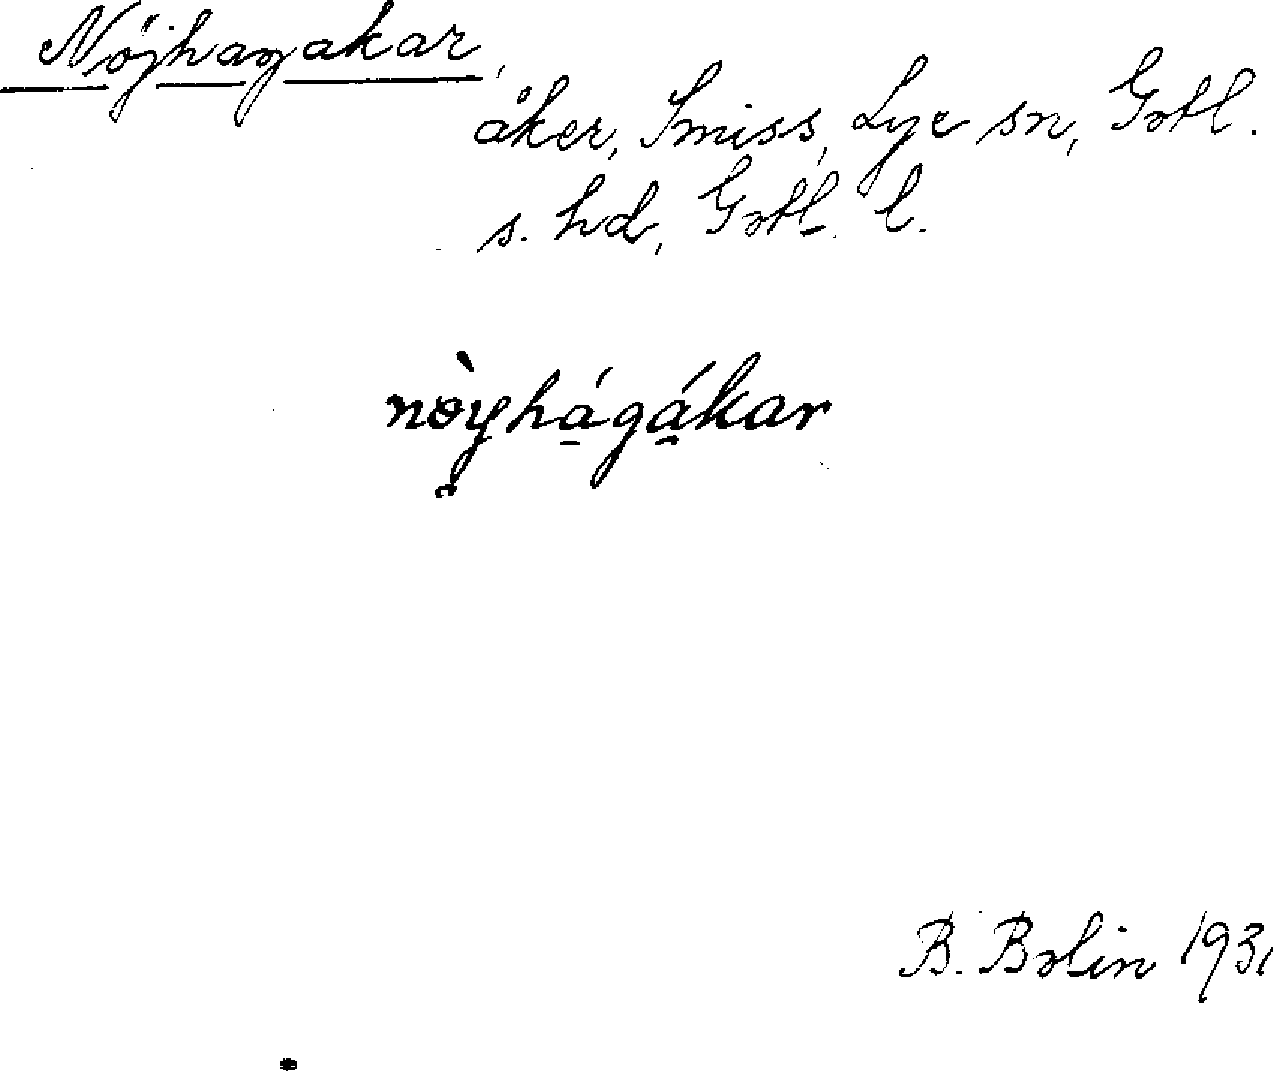 Nöjhagakar,
åker, Smiss, Lye sn, Gotl.
s. hd, Gotl. l.
nòyhágákar
B. Bolin 1931